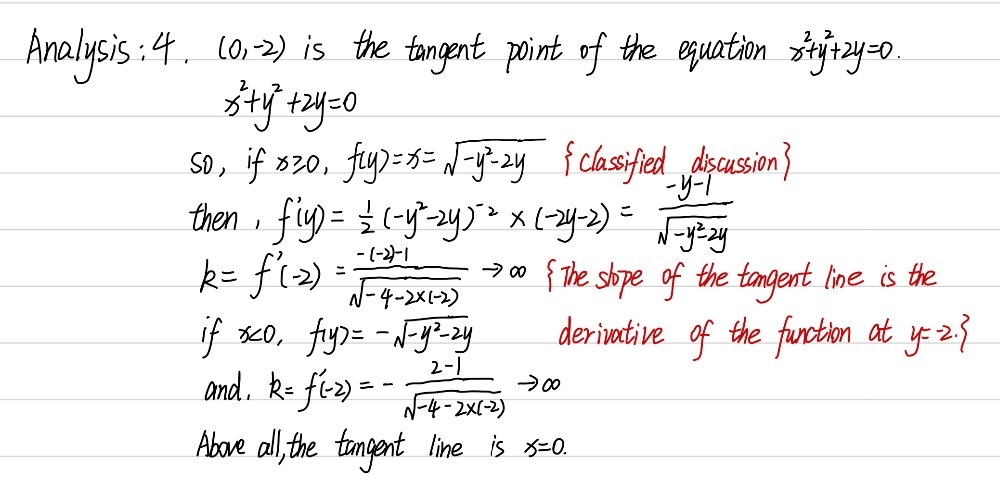 Analysis: 4. (0,-2) is the tangent point of the equation x²+y²+2y=0.
x²+y²+2y=0
so, if x≥0, f(y)=x=√(-y²-2y) {classified discussion}
then, f'(y)= 1/2 (-y²-2y)⁻² × (-2y-2) = (-y-1)/√(-y²-2y)
k= f'(-2) = (-(-2)-1)/√(-4-2×(-2)) → ∞ {The slope of the tangent line is the
if x<0, f(y)= -√(-y²-2y) derivative of the function at y=-2.}
and, k= f'(-2) = - (2-1)/√(-4-2×(-2)) → ∞
Above all, the tangent line is x=0.